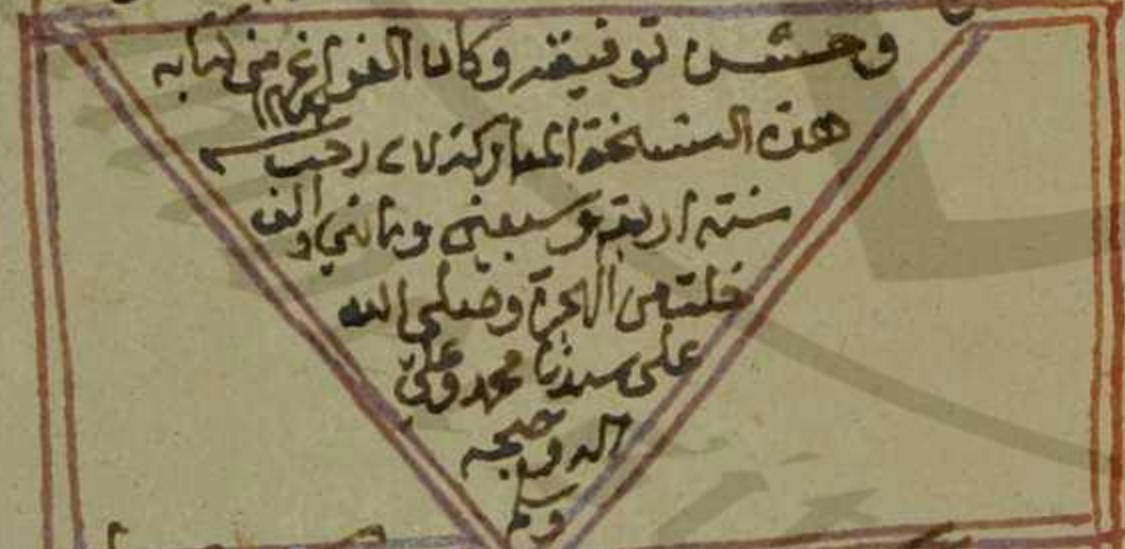 وحسن توفيقه وكان الفراغ من كتابه
هذه النسخة المباركة رجب
سنة اربعة وسبعين ومائتي والف
خلت من الهجرة وصلى الله
على سيدنا محمد وعلى
اله وصحبه
وسلم